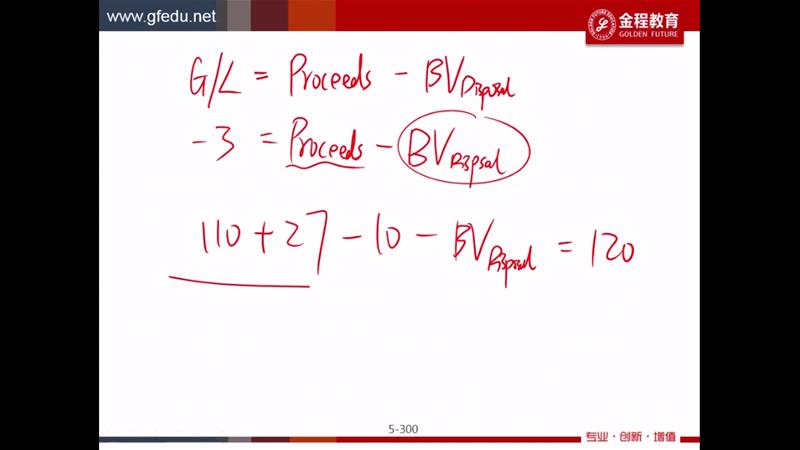 www.gfedu.net
金程教育
GOLDEN FUTURE
G/L = Proceeds - BV Disposal
-3 = Proceeds - BV Disposal
110 + 27 - 10 - BV Disposal = 120
5-300
专业·创新·增值